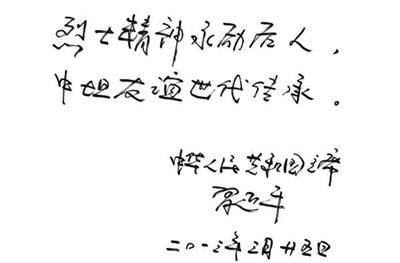 烈士精神永励后人，
中坦友谊世代传承。
中华人民共和国主席
习近平
二〇一三年三月廿五日